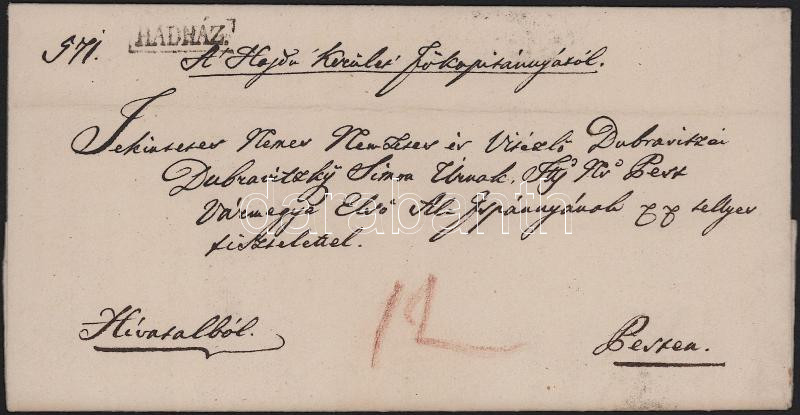 HADHÁZ.
571.
A' Hajdu Kerület főkapitányától.
Tekintetes Nemes Nemzetes és Vitézlő Dubraviczai
Dubraviczky Simon Úrnak, Pest
Vármegye Első Al Ispánnyának pp tellyes
tisztelettel.
12
Hivatalból.
Pesten.
darabanth